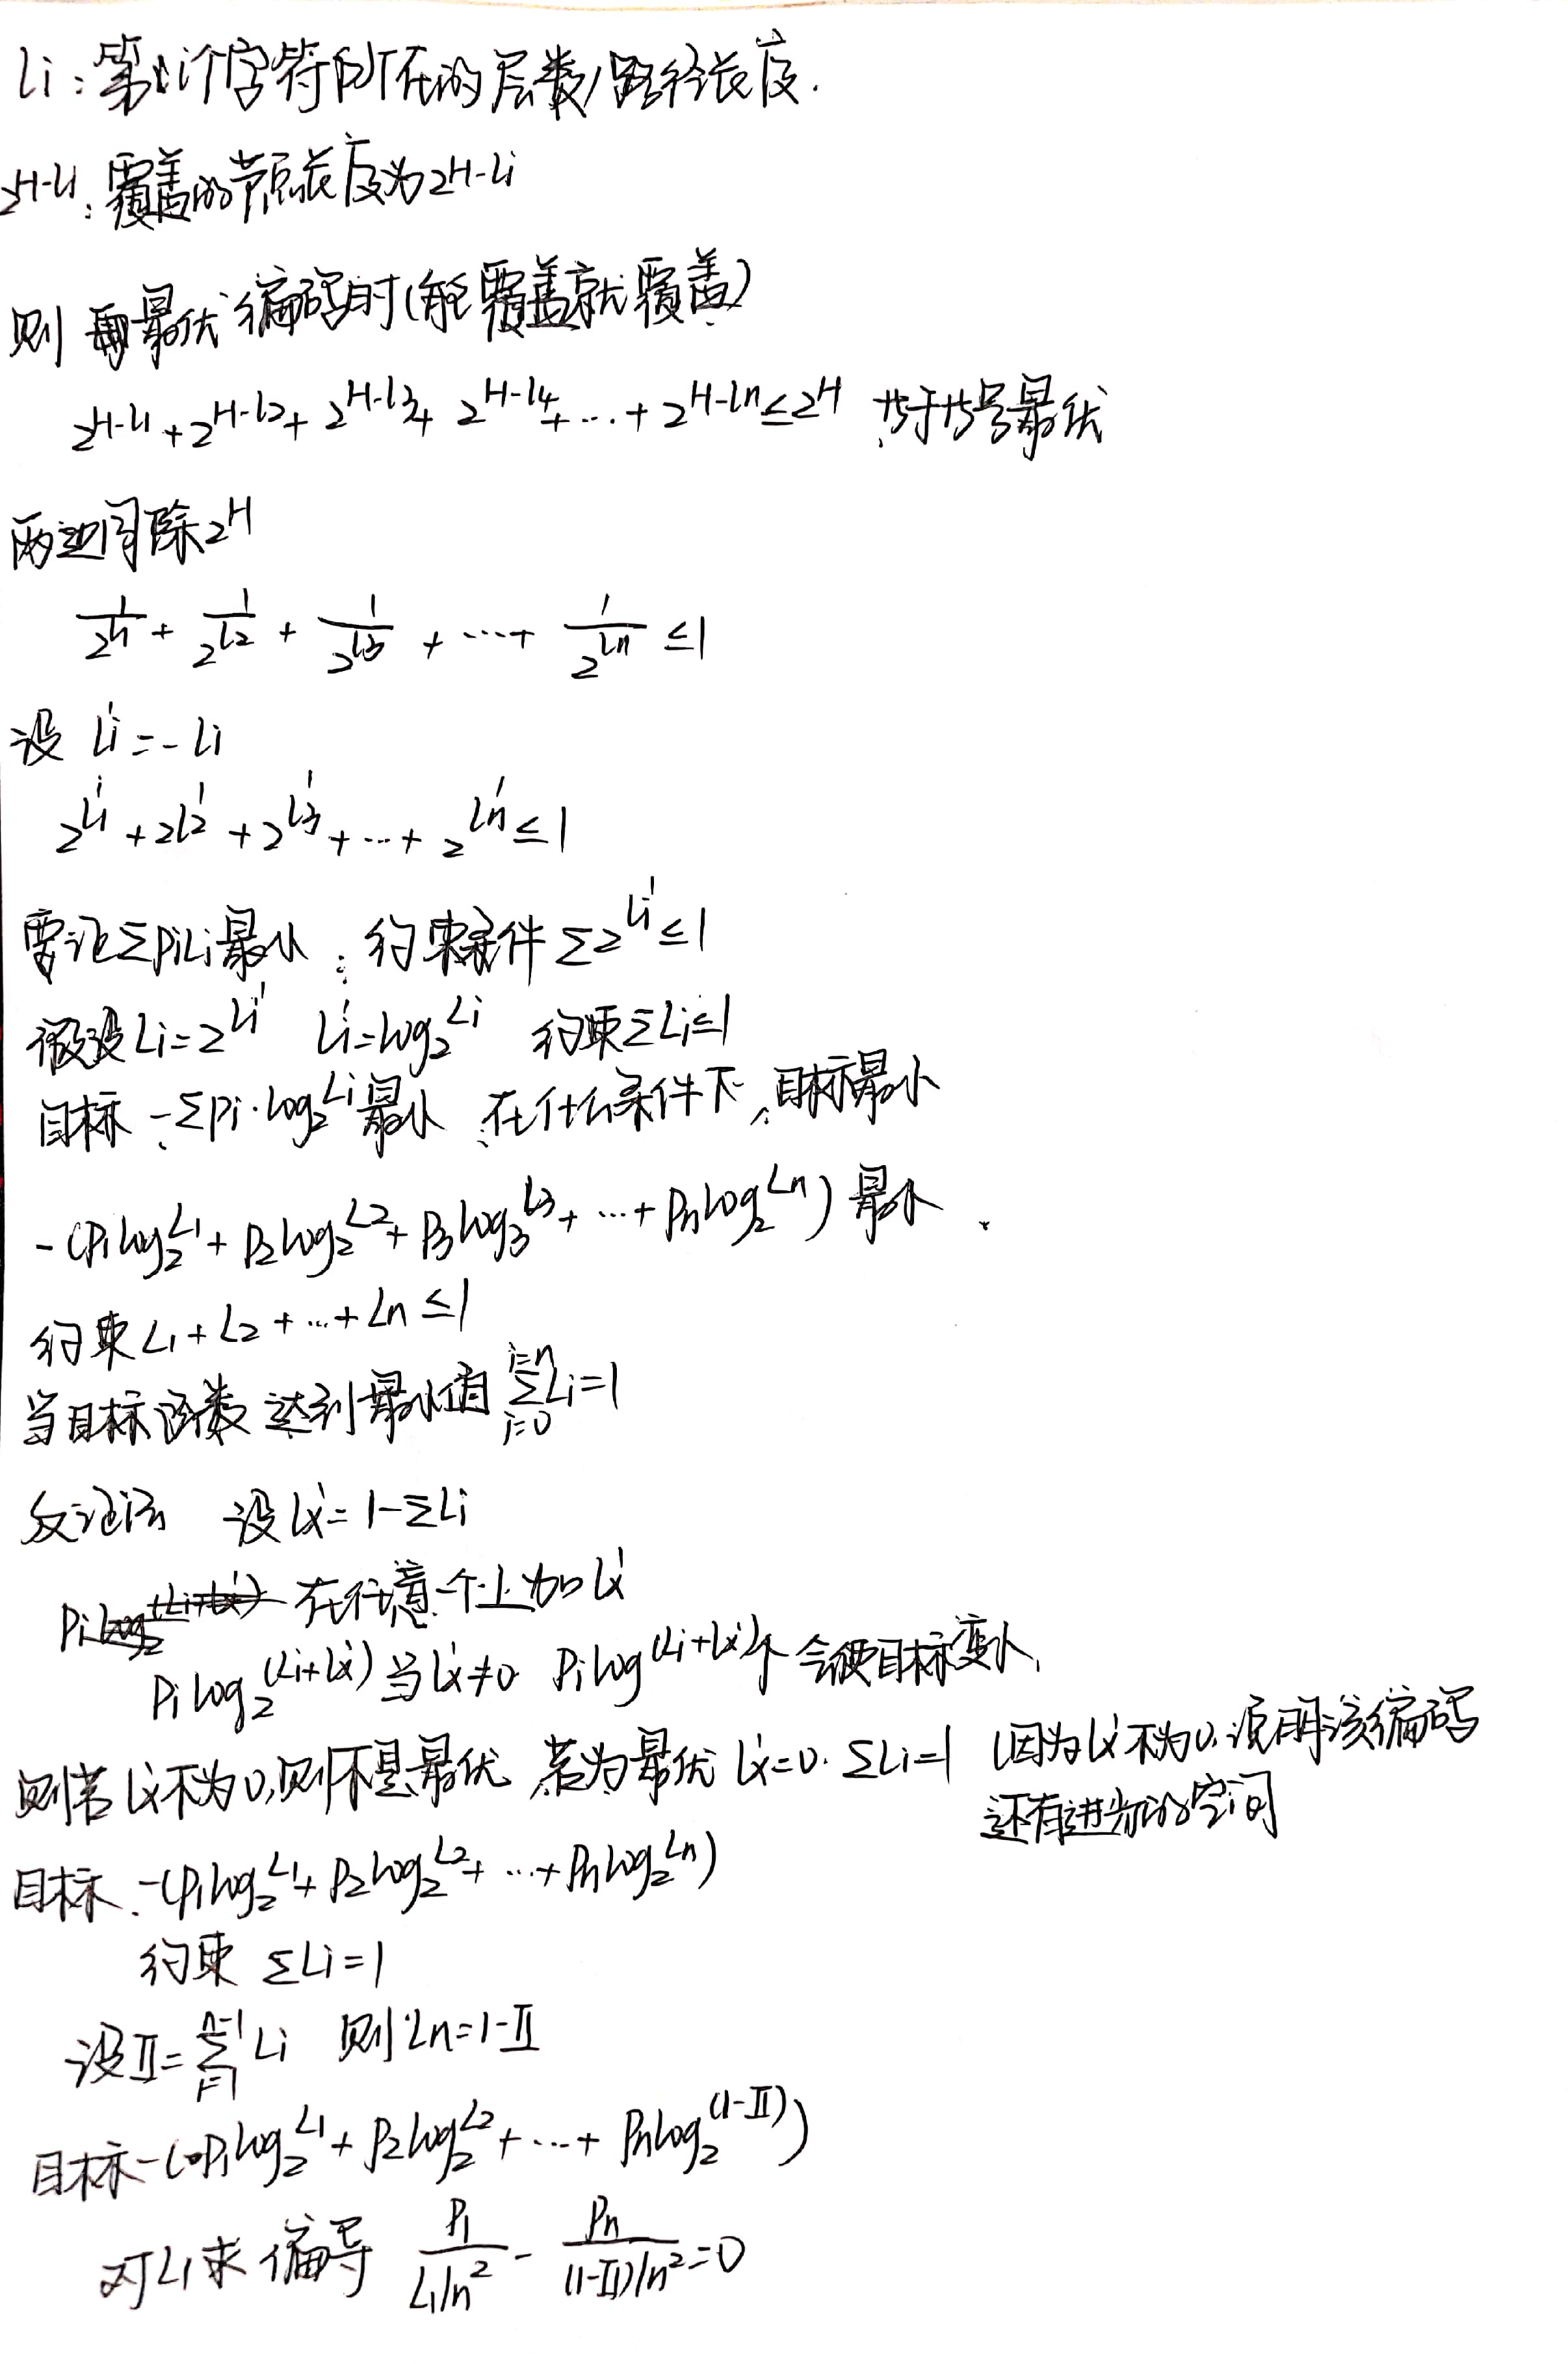 li：第i个字符所在的层数/路径长度.
2^{H-l1}：覆盖的节点长度为2^{H-li}
则 最优编码时(能覆盖就覆盖)
2^{H-l1}+2^{H-l2}+2^{H-l3}+2^{H-l4}+...+2^{H-ln}≤2^H
两边同除2^H
1/2^{l1} + 1/2^{l2} + 1/2^{l3} + ... + 1/2^{ln} ≤1
设 li'=-li
2^{l1'}+2^{l2'}+2^{l3'}+...+2^{ln'}≤1
要让ΣPili最小：约束条件Σ2^{li'}≤1
假设Li=2^{li'} li'=log_2^{Li} 约束ΣLi≤1
目标-ΣPi·log_2^{Li}最小 在什么条件下,目标最小
-(P1log_2^{L1}+P2log_2^{L2}+P3log_3^{L3}+...+Pnlog_2^{Ln})最小.
约束L1+L2+...+Ln≤1
当目标函数达到最小值 Σ_{i=0}^{i=n}Li=1
反证法 设Lx'=1-ΣLi
Pi 在任意一个上加Lx'
Pilog_2^{(Li+Lx')}当Lx'≠0 Pilog^{(Li+Lx')}个会使目标变小,
则若Lx'不为0,则不是最优 若为最优Lx'=0.ΣLi=1 (因为Lx'不为0.说明该编码
还有进步的空间
目标.-(P1log_2^{L1}+P2log_2^{L2}+...+Pnlog_2^{Ln})
约束 ΣLi=1
设Ⅱ=Σ_{i=1}^{n-1}Li 则Ln=1-Ⅱ
目标-(P1log_2^{L1}+P2log_2^{L2}+...+Pnlog_2^{(1-Ⅱ)})
对L1求偏导 P1/(L1ln2) - Pn/((1-Ⅱ)ln2)=0